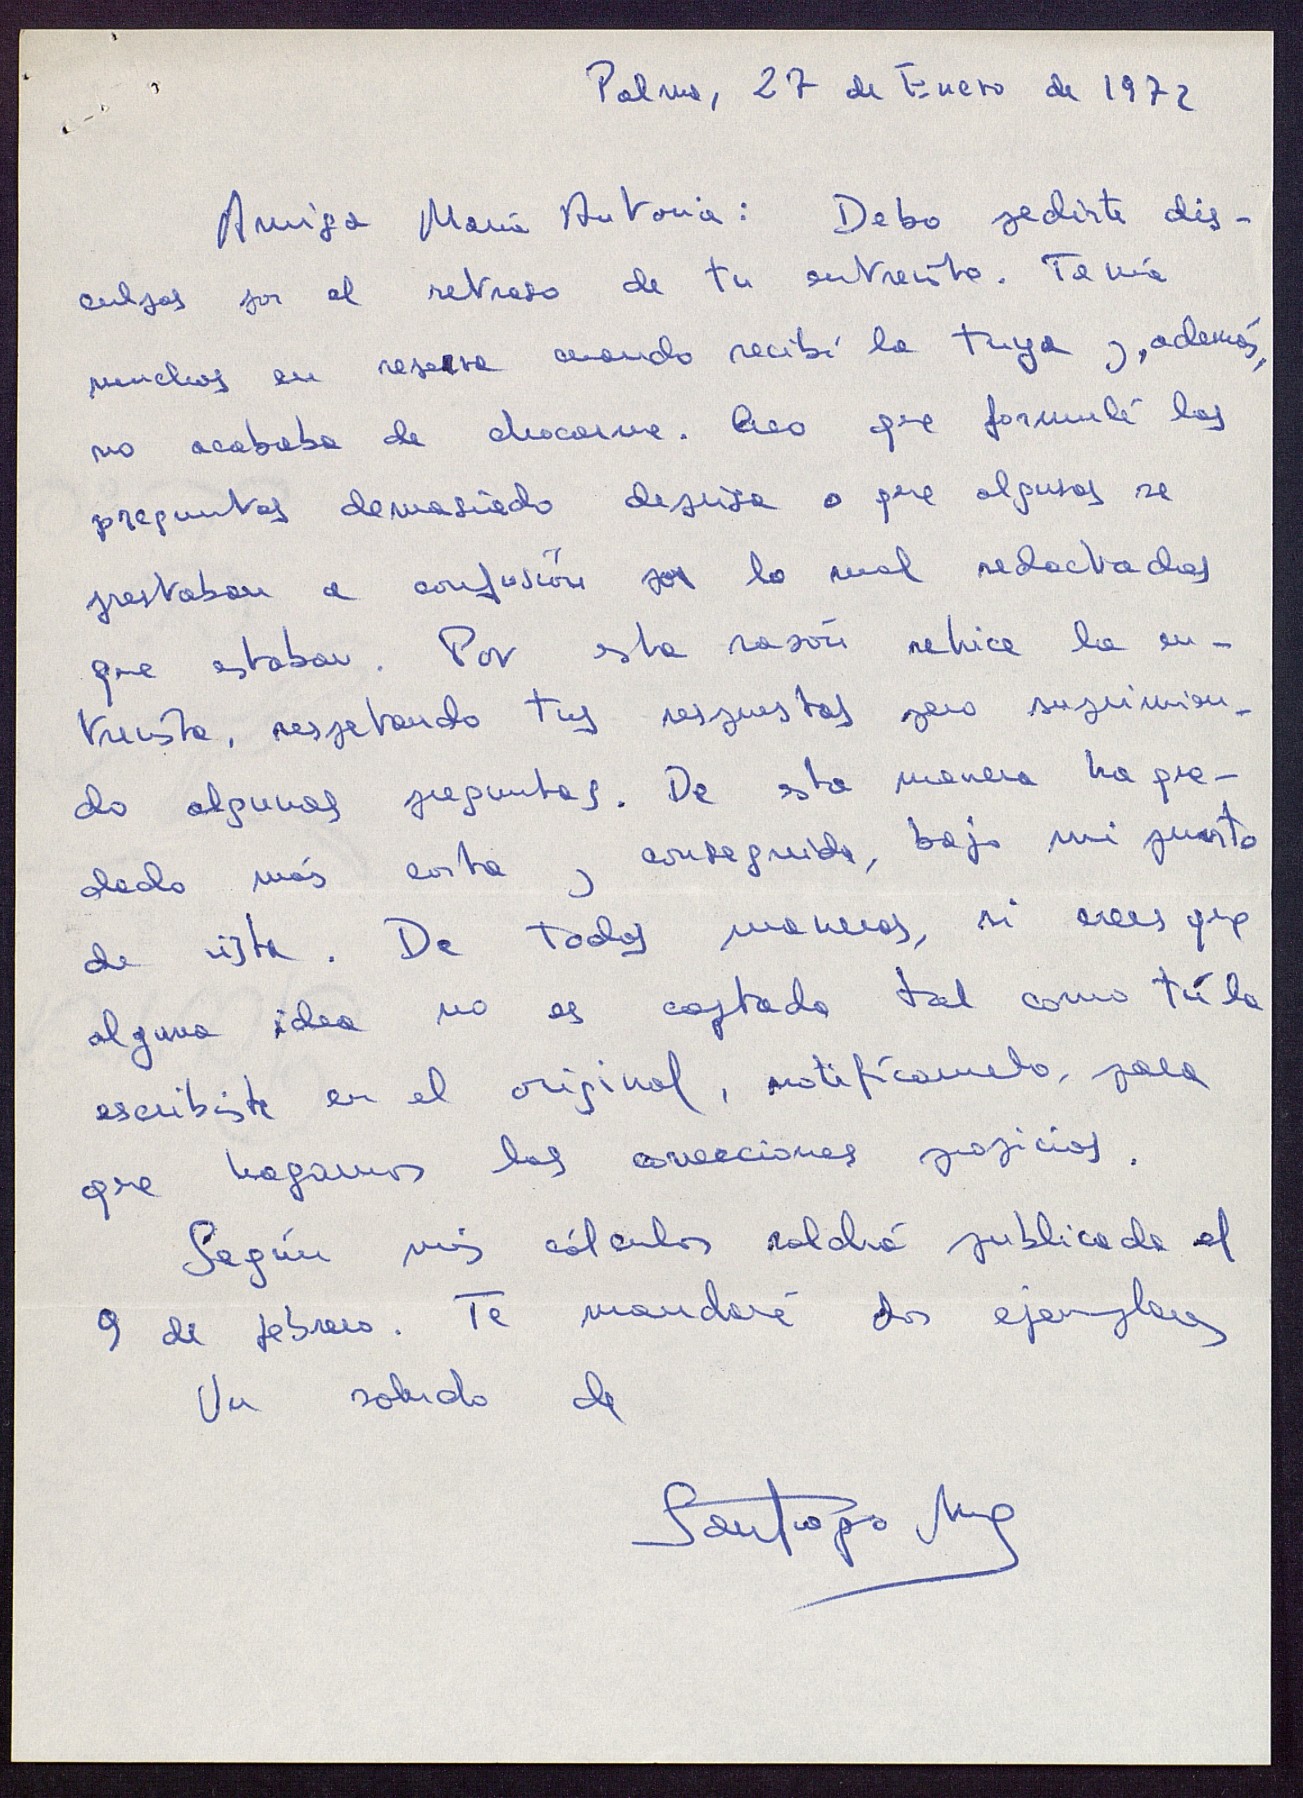 Palma, 27 de Enero de 1972
Amiga María Antonia: Debo pedirte dis-
culpas por el retraso de tu entrevista. Tenía
muchas en reserva cuando recibí la tuya y, además,
no acababa de chocarme. Creo que formulé las
preguntas demasiado deprisa o que algunas se
prestaban a confusión por lo mal redactadas
que estaban. Por esta razón rehice la en-
trevista, respetando tus respuestas pero suprimien-
do algunas preguntas. De esta manera ha que-
dado más corta y conseguida, bajo mi punto
de vista. De todas maneras, si crees que
alguna idea no es captada tal como tú la
escribiste en el original, notifícamelo, para
que hagamos las correcciones propicias.
Según mis cálculos saldrá publicada el
9 de febrero. Te mandaré dos ejemplares
Un saludo de
Santiago